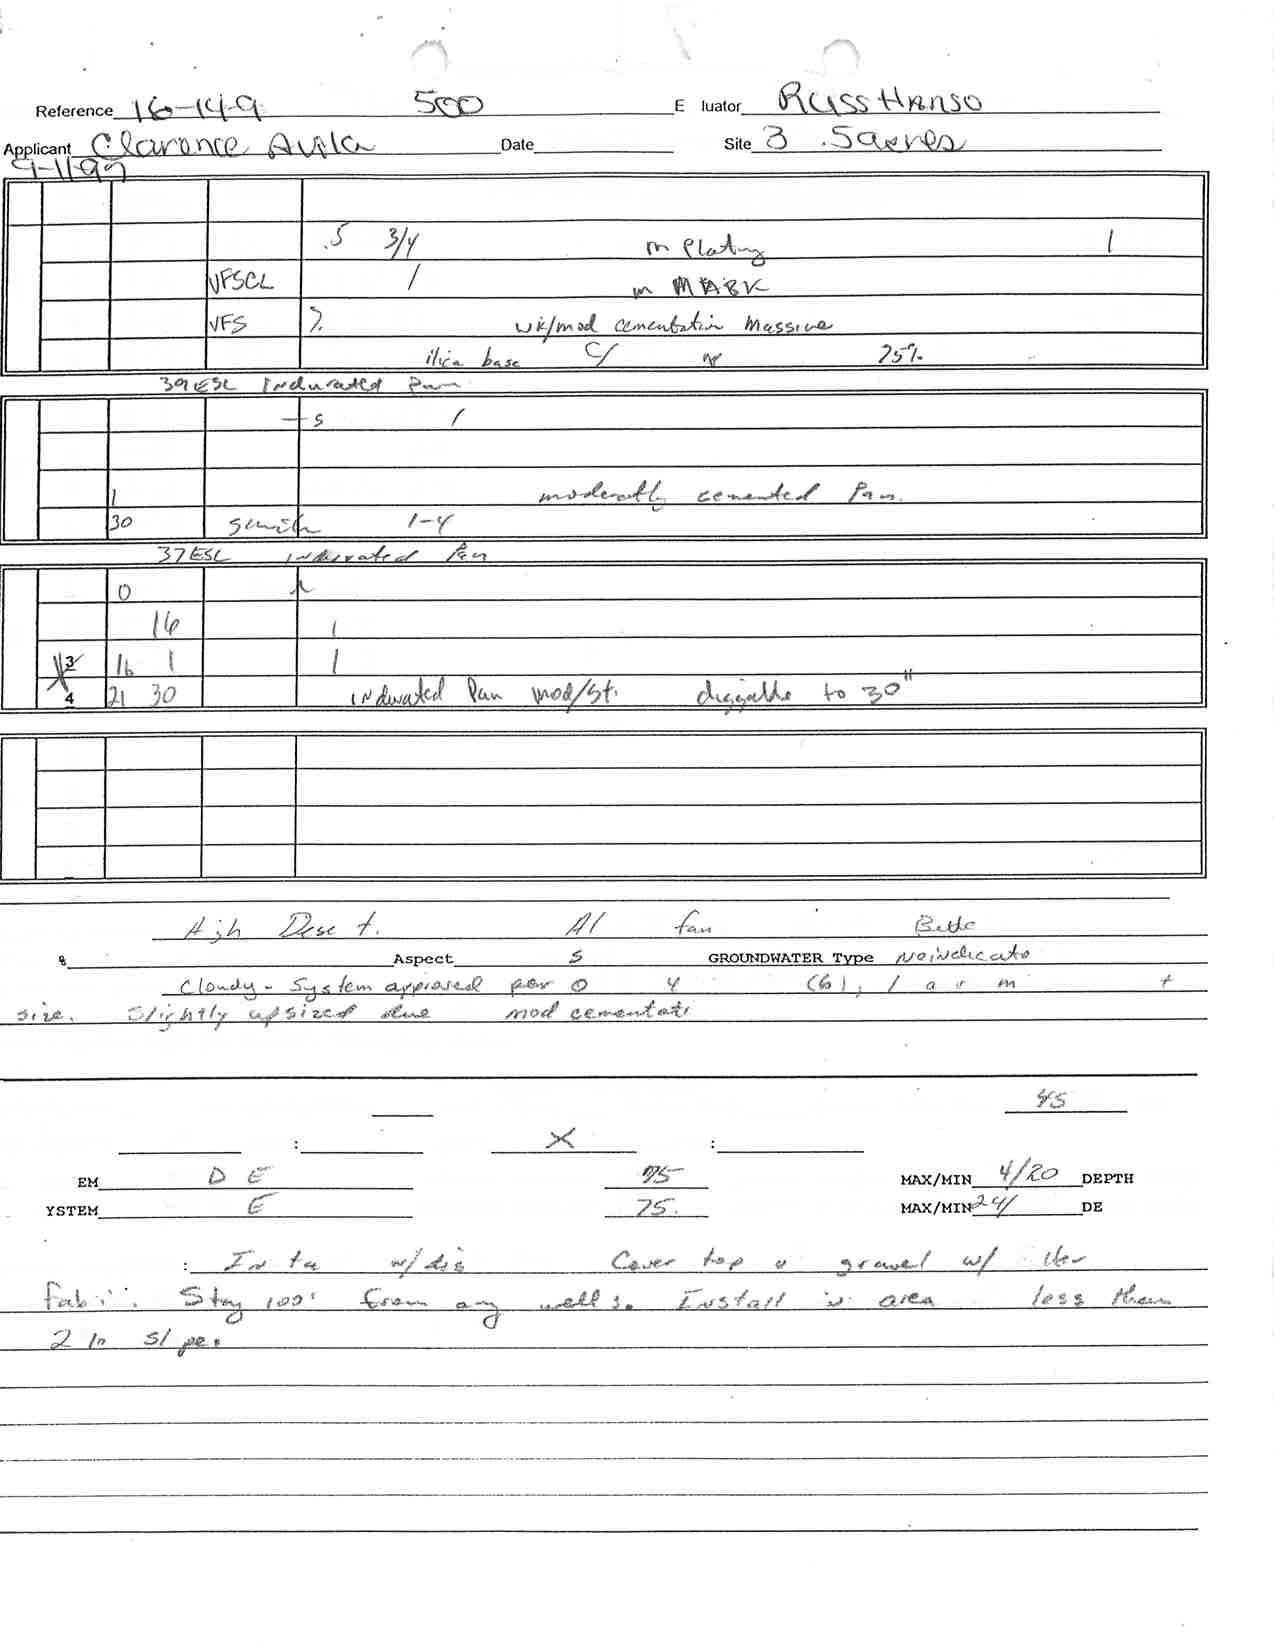 Reference 16-14-9 500 E luator Russ Hanso
Applicant Clarence Avila Date Site 3 .5acres
9-11-97
.5 3/4 m Platy 1
VFSCL 1 m MABK
VFS wk/mod cementatin Massive
ilica base C/ 75%
39 ESL Indurated Pan
s /
1 moderatly cemented Pan.
30 1-4
37 ESL indurated Pan
0
16 1
3 16 1 1
4 21 30 indurated Pan mod/St. diggable to 30"
High Dese t. Al fan Butte
% Aspect S GROUNDWATER Type
Cloudy - System approved per 0 4 (6), 1 a r m t
size. Slightly upsized due mod cementati
45
: X :
EM D E 75 MAX/MIN 4/20 DEPTH
YSTEM E 75. MAX/MIN 24/ DE
: In ta w/dis Cover top o gravel w/ lter
fabi. Stay 100' from any wells. Install in area less then
2 In sl pe.